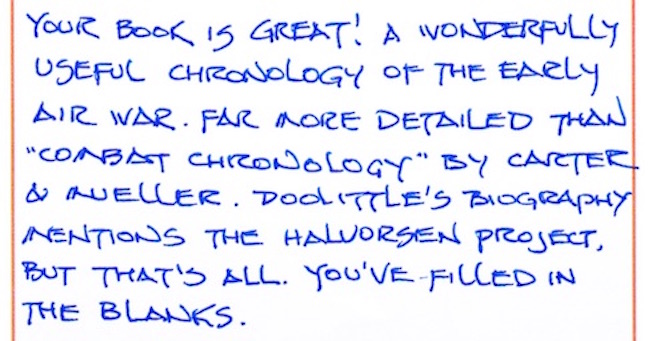 YOUR BOOK IS GREAT! A WONDERFULLY
USEFUL CHRONOLOGY OF THE EARLY
AIR WAR. FAR MORE DETAILED THAN
"COMBAT CHRONOLOGY" BY CARTER
& MUELLER. DOOLITTLE'S BIOGRAPHY
MENTIONS THE HALVORSEN PROJECT,
BUT THAT'S ALL. YOU'VE FILLED IN
THE BLANKS.